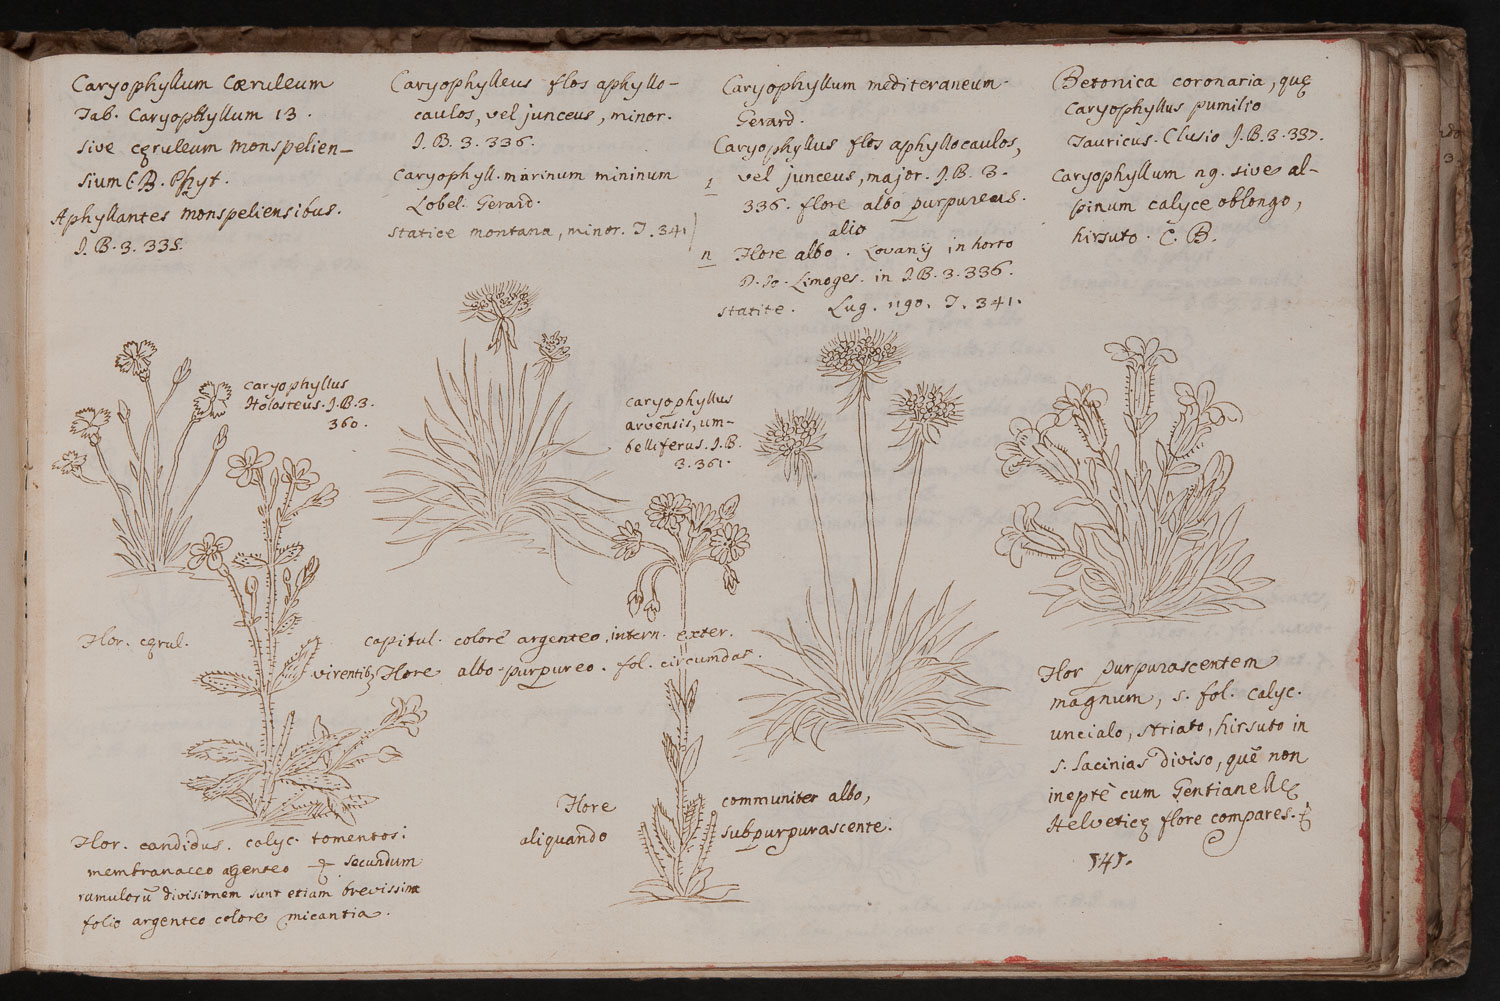 Caryophyllum Cæruleum
Tab. Caryophyllum 13.
sive cęruleum monspelien-
sium C.B. Phyt.
Aphyllantes monspeliensibus.
J.B. 3. 335.
Caryophylleus flos aphyllo-
caulos, vel junceus, minor.
J.B. 3. 336.
Caryophyll. marinum minimum
Lobel. Gerard.
statice montana, minor. T. 341
Caryophyllum mediteraneum.
Gerard.
Caryophyllus flos aphyllocaulos,
1 vel junceus, major. J.B. 3.
336. flore albo purpureus.
alio
n Flore albo. Lovanÿ in horto
D. Jo. Limoges. in J.B. 3. 336.
statite. Lug. 1190. T. 341.
Betonica coronaria, quę
Caryophyllus pumilio
Tauricus. Clusio J.B. 3. 337.
Caryophyllum ng. sive al-
pinum calyce oblongo,
hirsuto. C.B.
caryophyllus
Holosteus. J.B. 3.
360.
caryophyllus
arvensis, um-
belliferus. J.B.
3. 361.
Flor. cęrul.
capitul. colore argenteo, intern. exter.
virentibȝ Flore albo-purpureo. fol. circumdat.
Flor. candidus. calyc. tomentos:
membranaceo agenteo & secundum
ramulorũ divisionem sunt etiam brevissima
folio argenteo colore micantia.
Flore communiter albo,
aliquando subpurpurascente.
Flor purpurascentem
magnum, 5. fol. calyc.
uncialo, striato, hirsuto in
5. lacinias diviso, quẽ non
ineptè cum Gentianellę
Helveticę flore compares.
141.